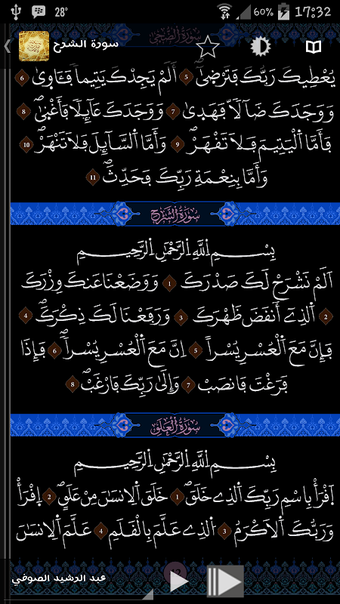 28° 60% 17:32
سورة الضحى
سورة الشرح
يُعْطِيكَ رَبُّكَ فَتَرْضَىٰٓ 5 أَلَمْ يَجِدْكَ يَتِيماً فَـَٔاوَىٰ 6
وَوَجَدَكَ ضَآلّاً فَهَدَىٰ 7 وَوَجَدَكَ عَآئِلاً فَأَغْنَىٰ 8
فَأَمَّا اَلْيَتِيمَ فَلَا تَقْهَرْ 9 وَأَمَّا اَلسَّآئِلَ فَلَا تَنْهَرْ 10
وَأَمَّا بِنِعْمَةِ رَبِّكَ فَحَدِّثْ 11
سُورَةُ الشَّرْحِ
بِسْمِ اِللَّهِ اِلرَّحْمَٰنِ اِلرَّحِيمِ
أَلَمْ نَشْرَحْ لَكَ صَدْرَكَ 1 وَوَضَعْنَا عَنكَ وِزْرَكَ
2 اَلَذِےٓ أَنقَضَ ظَهْرَكَ 3 وَرَفَعْنَا لَكَ ذِكْرَكَ 4
فَإِنَّ مَعَ اَلْعُسْرِ يُسْراً 5 اِنَّ مَعَ اَلْعُسْرِ يُسْراً 6 فَإِذَا
فَرَغْتَ فَانصَبْ 7 وَإِلَىٰ رَبِّكَ فَارْغَب 8
سُورَةُ الْعَلَقِ
بِسْمِ اِللَّهِ اِلرَّحْمَٰنِ اِلرَّحِيمِ
اِقْرَأْ بِاسْمِ رَبِّكَ اَلذِے خَلَقَ 1 خَلَقَ اَلِانسَٰنَ مِنْ عَلَقٍ 2 اِقْرَأْ
وَرَبُّكَ اَلَاكْرَمُ 3 اُلذِے عَلَّمَ بِالْقَلَمِ 4 عَلَّمَ اَلِانسَٰنَ
عبد الرشيد الصوفي